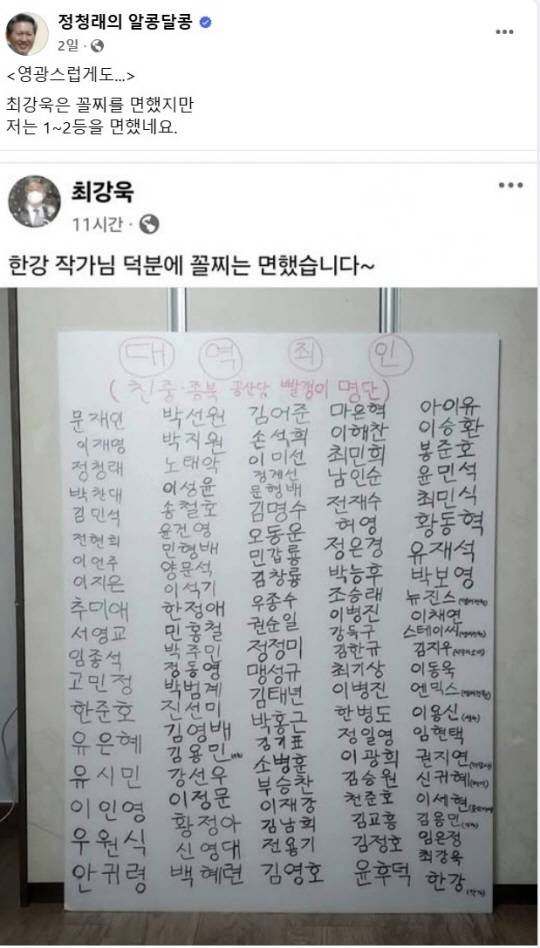 정청래의 알콩달콩
2일 ·
<영광스럽게도...>
최강욱은 꼴찌를 면했지만
저는 1~2등을 면했네요.
최강욱
11시간 ·
한강 작가님 덕분에 꼴찌는 면했습니다~
대 역 죄 인
(친중·종북 공산당 빨갱이 명단)
문재인
이재명
정청래
박찬대
김민석
전현희
이언주
이지은
추미애
서영교
임종석
고민정
한준호
유은혜
유시민
이인영
우원식
안귀령
박선원
박지원
노태악
이성윤
송철호
윤건영
민형배
양문석
이석기
한정애
민홍철
박주민
정동영
박범계
진선미
김영배
김용민
강선우
이정문
황정아
신영대
백혜련
김어준
손석희
이미선
정계선
문형배
김명수
오동운
민갑룡
김창룡
우종수
권순일
정정미
맹성규
김태년
박홍근
김기표
소병훈
부승찬
이재강
김남희
전용기
김영호
마은혁
이해찬
최민희
남인순
전재수
허영
정은경
박능후
조승래
이병진
강득구
김한규
최기상
이병진
한병도
정일영
이광희
김승원
천준호
김교흥
김정호
윤후덕
아이유
이승환
봉준호
윤민석
최민식
황동혁
유재석
박보영
뉴진스
이채연
스테이씨
김지우
이동욱
엔믹스
이용신
임현택
권지연
신귀혜
이세현
김용민
임은정
최강욱
한강